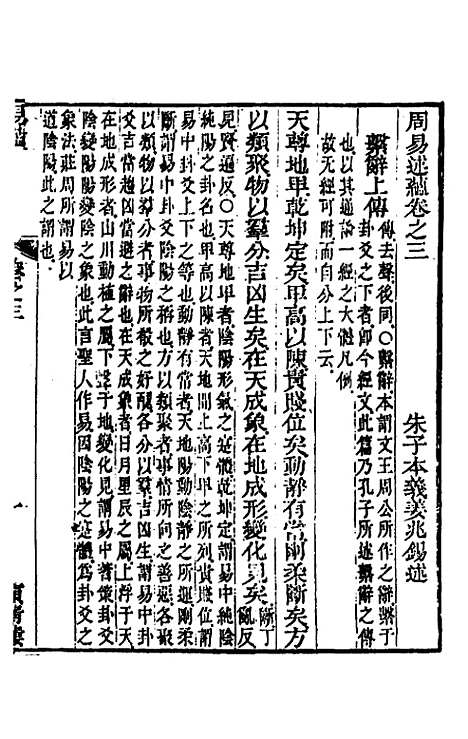 周易述蘊卷之三　朱子本義姜兆錫述
繫辭上傳
傳去聲後同○繫辭本謂文王周公所作之辭繫于
卦爻之下者即今經文此篇乃孔子所述繫辭之傳
也以其通論一經之大體凡例
故无經可附而自分上下云
天尊地卑乾坤定矣卑高以陳貴賤位矣動靜有常剛柔斷矣方
以類聚物以羣分吉凶生矣在天成象在地成形變化見矣
斷丁亂反
見賢遍反○天尊地卑者陰陽形氣之寔體乾坤定謂易中純陰
純陽之卦名也卑高以陳者天地間上高下卑之所列貴賤位謂
易中卦爻上下之等也動靜有常者天地陽動陰靜之所運剛柔
斷謂易中卦爻陰陽之稱也方以類聚者事情所向之善惡各聚
以類物以羣分者事物所殽之好醜各分以羣吉凶生謂易中卦
爻吉當趨凶當避之辭也在天成象者日月星辰之屬上浮于天
在地成形者山川動植之屬下墜于地變化見謂易中蓍策卦爻
陰變陽陽變陰之象也此言聖人作易因陰陽之寔體爲卦爻之
象法莊周所謂易以
道陰陽此之謂也
易蘊
卷之三
一
寅清樓